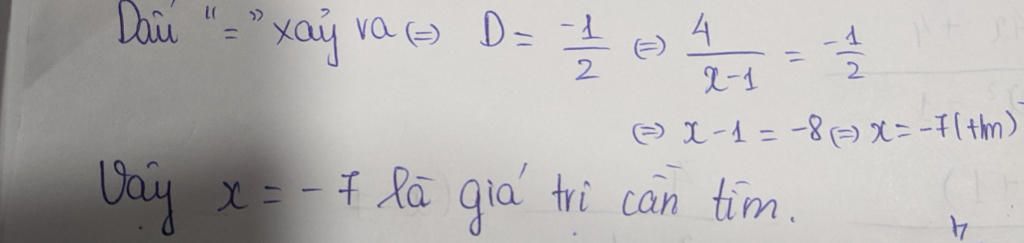 Dấu "=" xảy ra ⇔ D = -1/2 ⇔ 4/(x-1) = -1/2
⇔ x - 1 = -8 ⇔ x = -7 (tm)
Vậy x = -7 là giá trị cần tìm.